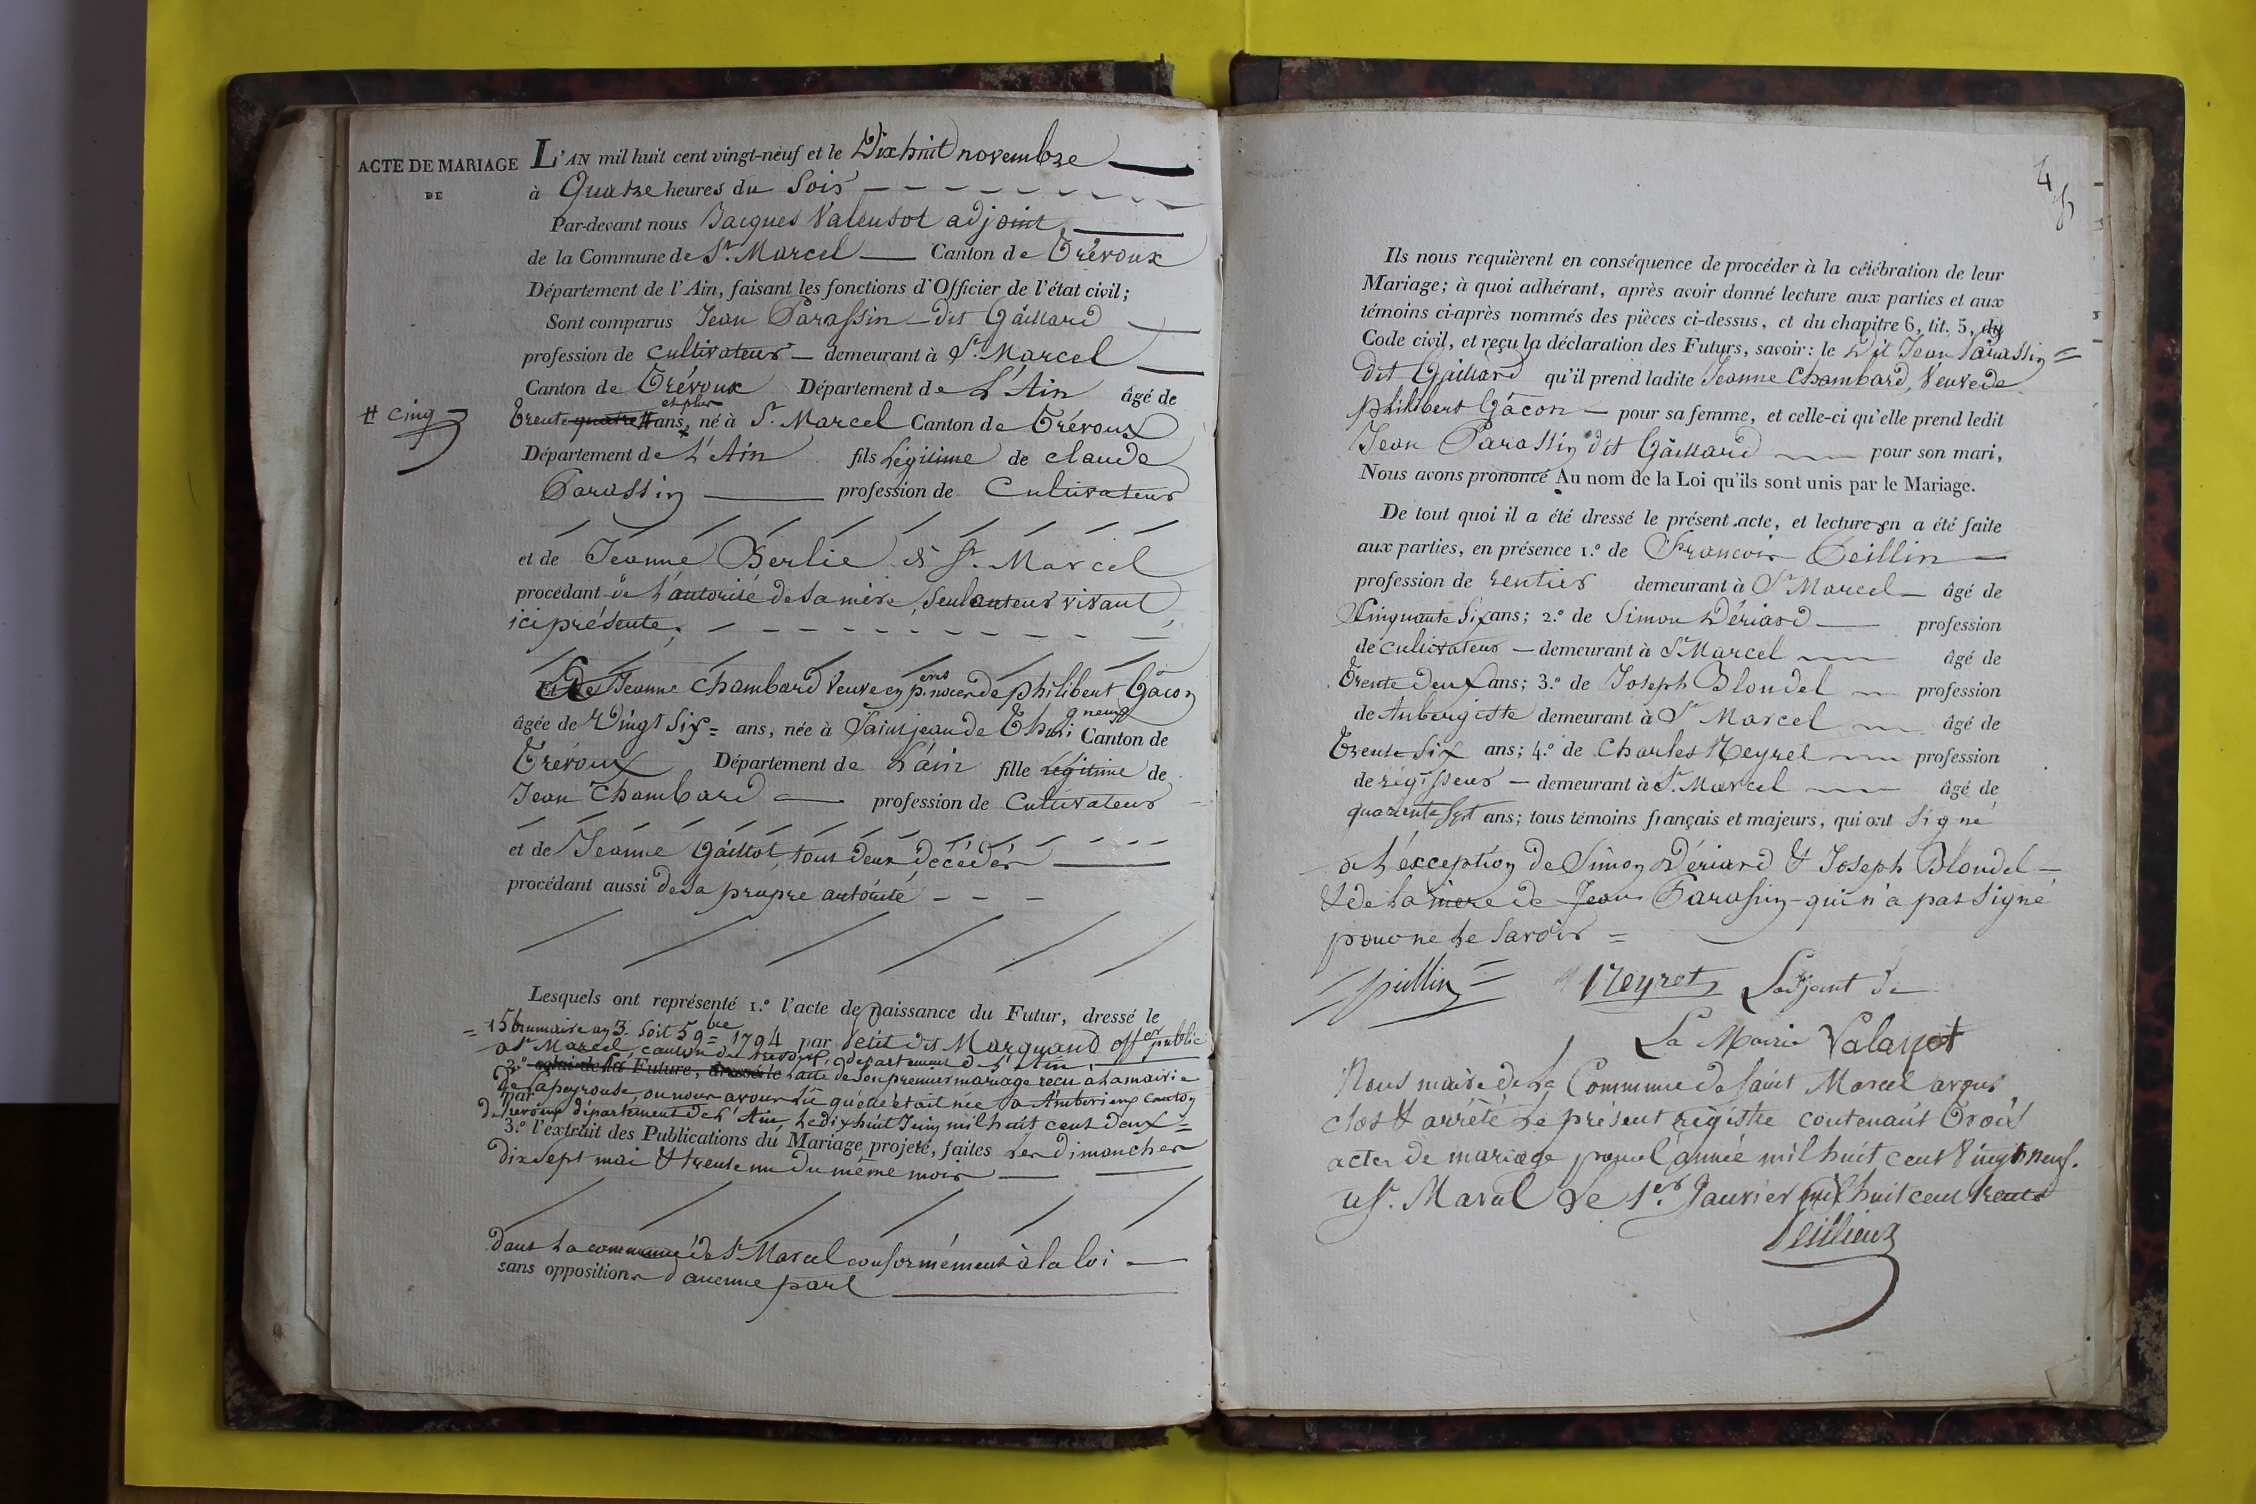 ACTE DE MARIAGE
DE
L'AN mil huit cent vingt-neuf et le Dix huit novembre
à Quatre heures du Soir
Par-devant nous Jacques Valensot adjoint
de la Commune de St. Marcel Canton de Trévoux
Département de l'Ain, faisant les fonctions d'Officier de l'état civil;
Sont comparus Jean Parassin dit Gaillard
profession de cultivateur demeurant à St. Marcel
Canton de Trévoux Département de L'Ain âgé de
# cinq
et plus
Trente quatre # ans, né à St. Marcel Canton de Trévoux
Département de L'Ain fils Légitime de claude
Parassin profession de Cultivateur
et de Jeanne Berlie de St. Marcel
procédant de L'autorité de sa mère, seul auteur vivant
ici présente,
Et de Jeanne Chambard Veuve en pres noces de philibert Gâcon
âgée de Vingt Six = ans, née à Saint jean de Thurigneux Canton de
Trévoux Département de L'ain fille Légitime de
Jean Chambard profession de Cultivateur
et de Jeanne Gaillot, tous deux décédés
procédant aussi de sa propre autorité
Lesquels ont représenté 1.º l'acte de naissance du Futur, dressé le
= 15 brumaire an 3. Soit 5 9bre 1794 par petit dit Marquand offer public
a St Marcel, canton de trevoux, département de L'Ain,
2.º celui de la Future, dressé le L'acte de son premier mariage reçu a la mairie
de Lapeyrouse, ou nous avons vu qu'elle était née a Ambérieux canton
par
de trevoux département de L'Ain, Le dix huit Juin mil huit cent deux =
3.º l'extrait des Publications du Mariage projeté, faites les dimanches
dix sept mai & trente un du même mois
dans La commune de St Marcel conformément à la loi
sans opposition d'aucune part
4
Ils nous requièrent en conséquence de procéder à la célébration de leur
Mariage; à quoi adhérant, après avoir donné lecture aux parties et aux
témoins ci-après nommés des pièces ci-dessus, et du chapitre 6, tit. 5, du
Code civil, et reçu la déclaration des Futurs, savoir: le Dit Jean Parassin =
dit Gaillard qu'il prend ladite Jeanne Chambard, Veuve de
philibert Gâcon pour sa femme, et celle-ci qu'elle prend ledit
Jean Parassin dit Gaillard pour son mari,
Nous avons prononcé Au nom de la Loi qu'ils sont unis par le Mariage.
De tout quoi il a été dressé le présent acte, et lecture en a été faite
aux parties, en présence 1.º de François Peillin
profession de rentier demeurant à St Marcel âgé de
Cinquante Six ans; 2.º de Simon Dériard profession
de cultivateur demeurant à St Marcel âgé de
Trente deux ans; 3.º de Joseph Blondel profession
de Aubergiste demeurant à St Marcel âgé de
Trente Six ans; 4.º de Charles Neyret profession
de régisseur demeurant à St. Marcel âgé de
quarente Sept ans; tous témoins français et majeurs, qui ont Signé
a L'éxception de Simon Dériard & Joseph Blondel
& de La mere de Jean Parassin qui n'a pas Signé
pour ne le savoir =
peillin Neyret L'adjoint de
La Mairie Valansot
Nous maire de La Commune de Saint Marcel avons
clos & arrêté Le présent régistre contenant Trois
actes de mariage pour l'année mil huit cent Vingt neuf.
a St. Marcel Le 1er. Janvier mil huit cent trente